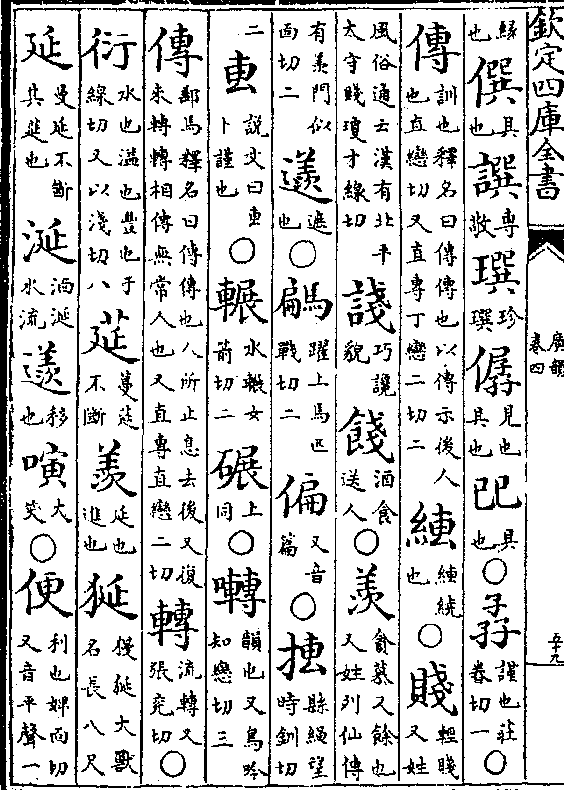 欽定四庫全書
廣韻
卷四
五十九
緣也 僎具也 譔專敎 㻵珍㻵 僝見也具也 具也○孨謹也莊眷切一○
傳訓也釋名曰傳傳也以傳示後人也直戀切又直專丁戀二切二 繞也○賤輕賤又姓
風俗通云漢有北平太守賤瓊才線切 諓巧讒貌 餞酒食送人○羨貪慕又餘也又姓列仙傳
有羨門似面切二 進也○騗躍上馬匹戰切二 偏又音篇○ 縣繩望時釧切
二 叀說文曰叀卜謹也○輾水輾女箭切二 碾上同○囀韻也又鳥吟知戀切三
傳郵馬釋名曰傳傳也人所止息去後又復來轉轉相傳無常人也又直專直戀二切 轉流轉又張兗切○
衍水也溢也豐也于線切又以淺切八 莚蔓莚不斷 羨延也進也 狿獌狿大獸名長八尺
延曼延不斷其莚也 涎湎涎水流 移也 大笑○便利也婢面切又音平聲一